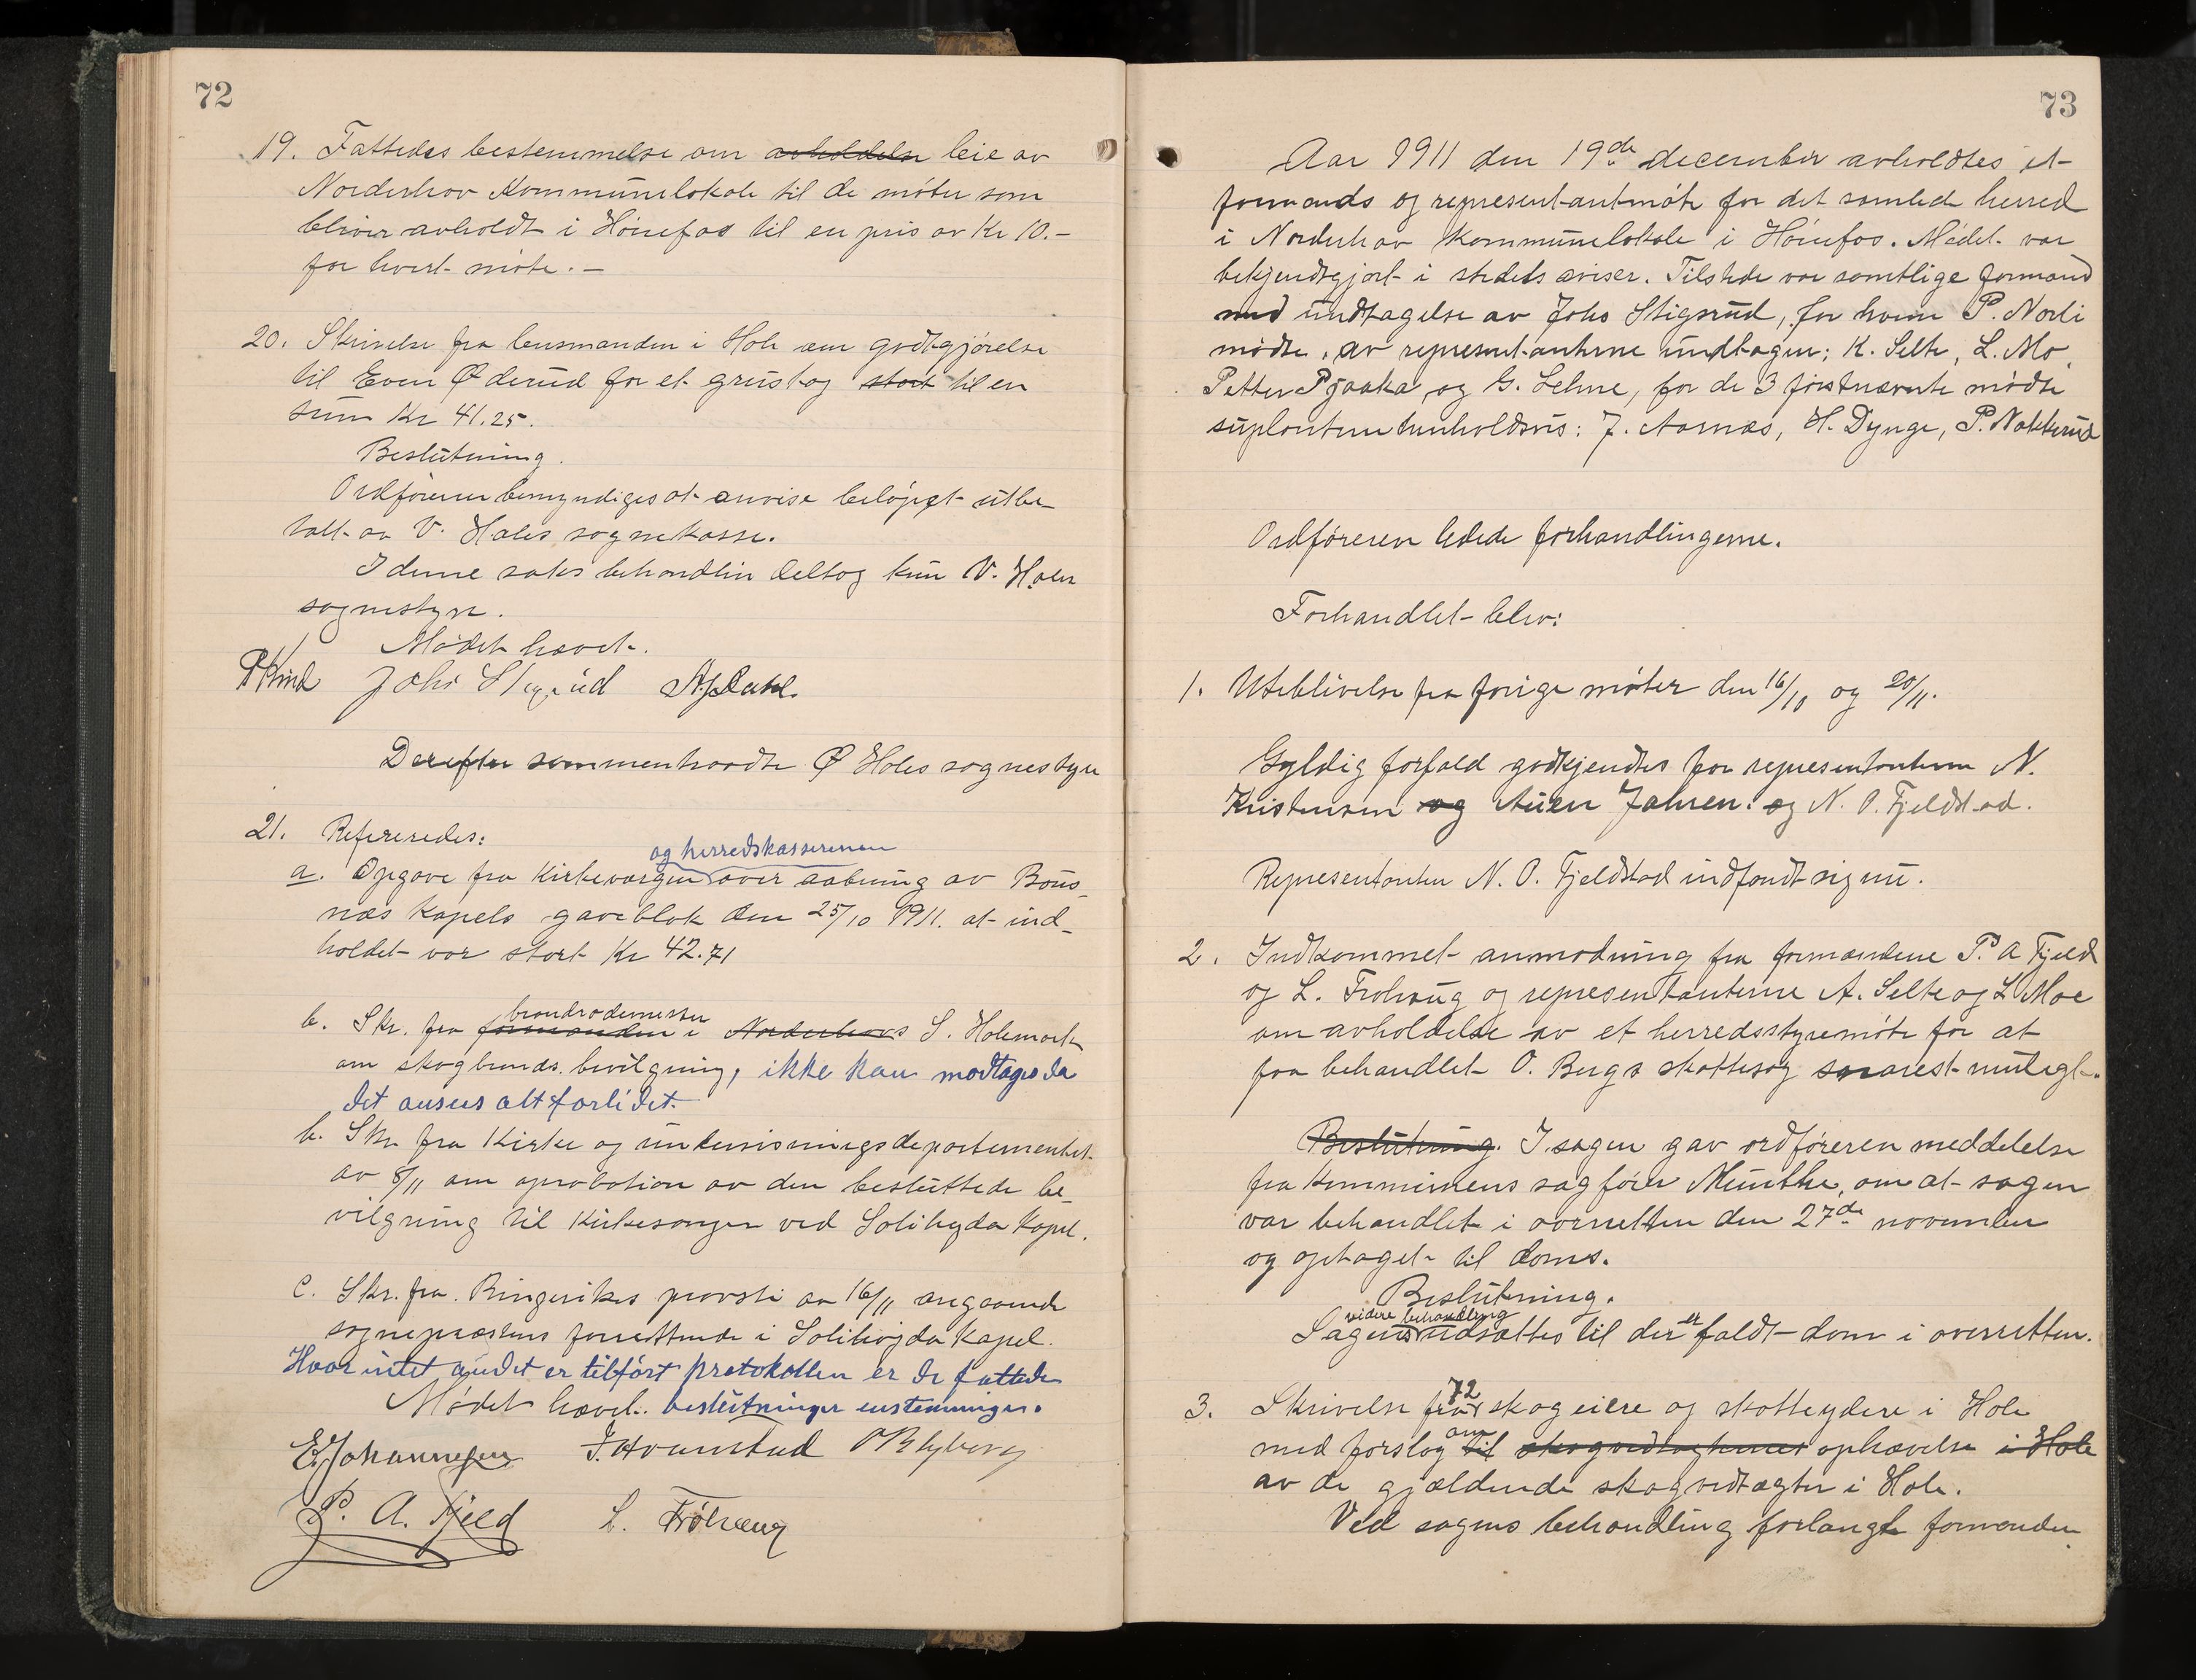 72
19. Fattedes bestemmelse om avholdelse leie av
Norderhov Kommunelokale til de møter som
bliver avholdt i Hønefos til en pris av Kr 10.-
for hvert møte. -
20. Skrivelse fra lensmanden i Hole om godtgjørelse
til Even Øderud for et grustag stort til en
sum Kr 41.25.
Beslutning.
Ordføreren bemyndiges at anvise beløpet utbe
talt av V. Holes sognekasse.
I denne saks behandlin deltog kun V. Holes
sognestyre.
Mødet hævet.
Johs Stigsrud
Derefter sammentraadte Ø Holes sognestyre
21. Refereredes:
og herredskassereren
a. Opgave fra Kirkeværgen over aabning av Bøns
næs kapels gaveblok den 25/10 1911. at ind-
holdet var stort Kr 42.71
brandrodemester
b. Skr. fra formanden i Norderhovs S. Holemark
om skogbrands. bevilgning, ikke kan modtages da
det ansees alt for lidet.
b. Skr fra Kirke og undervisningsdepartementet
av 8/11 om aprobation av den besluttede be-
vilgning til Kirkesanger ved Solihøgda kapel.
c. Skr. fra Ringerikes provsti av 16/11 angaaende
sogneprestens forrettende i Solihøjda kapel.
Hvor intet andet er tilført protokollen er de fattede
Mødet hævet. beslutninger enstemmiger.
E. Johannesen J. Hvamstad
P. A. Fjeld L. Frøhaug
73
Aar 1911 den 19de december avholdtes et
formands og representantmøte for det samlede herred
i Norderhov Kommunelokale i Hønefos. Mødet var
bekjendtgjort i stedets aviser. Tilstede var samtlige formænd
med undtagelse av Johs Stigsrud, for hvem P. Norli
mødte, av representanterne undtagen: K. Selte, L. Mo
Petter Pjaaka, og G. Lehne, for de 3 førstnævnte mødte
suplanterne henholdsvis: J. Aarnæs, H. Dynge, P. Nakkerud
Ordføreren ledede forhandlingerne.
Forhandlet blev:
1. Uteblivelse fra forige møter den 16/10 og 20/11.
Gyldig forfald godkjendtes for representanterne N.
Kristensen og Auen Jahren. og N. O. Fjeldstad.
Representanten N. O. Fjeldstad indfandt sig nu.
2. Indkommet anmodning fra formændene P. A Fjeld
og L. Frøhaug og representanterne A. Selte og L Moe
om avholdelse av et herredsstyremøte for at
faa behandlet O. Bergs skattesag snarest muligt.
Beslutning. I sagen gav ordføreren meddelelse
fra kommunens sagfører Munthe, om at sagen
var behandlet i overretten den 27de november
og optaget til doms.
Beslutning.
videre behandling
Sagens udsættes til der er faldt dom i overretten.
3. Skrivelse fra 72 skogeiere og skatteydere i Hole
med forslag til om skogvedtægternes ophævelse i Hole
av de gjældende skogvedtægter i Hole.
Ved sagens behandling forlangte formanden